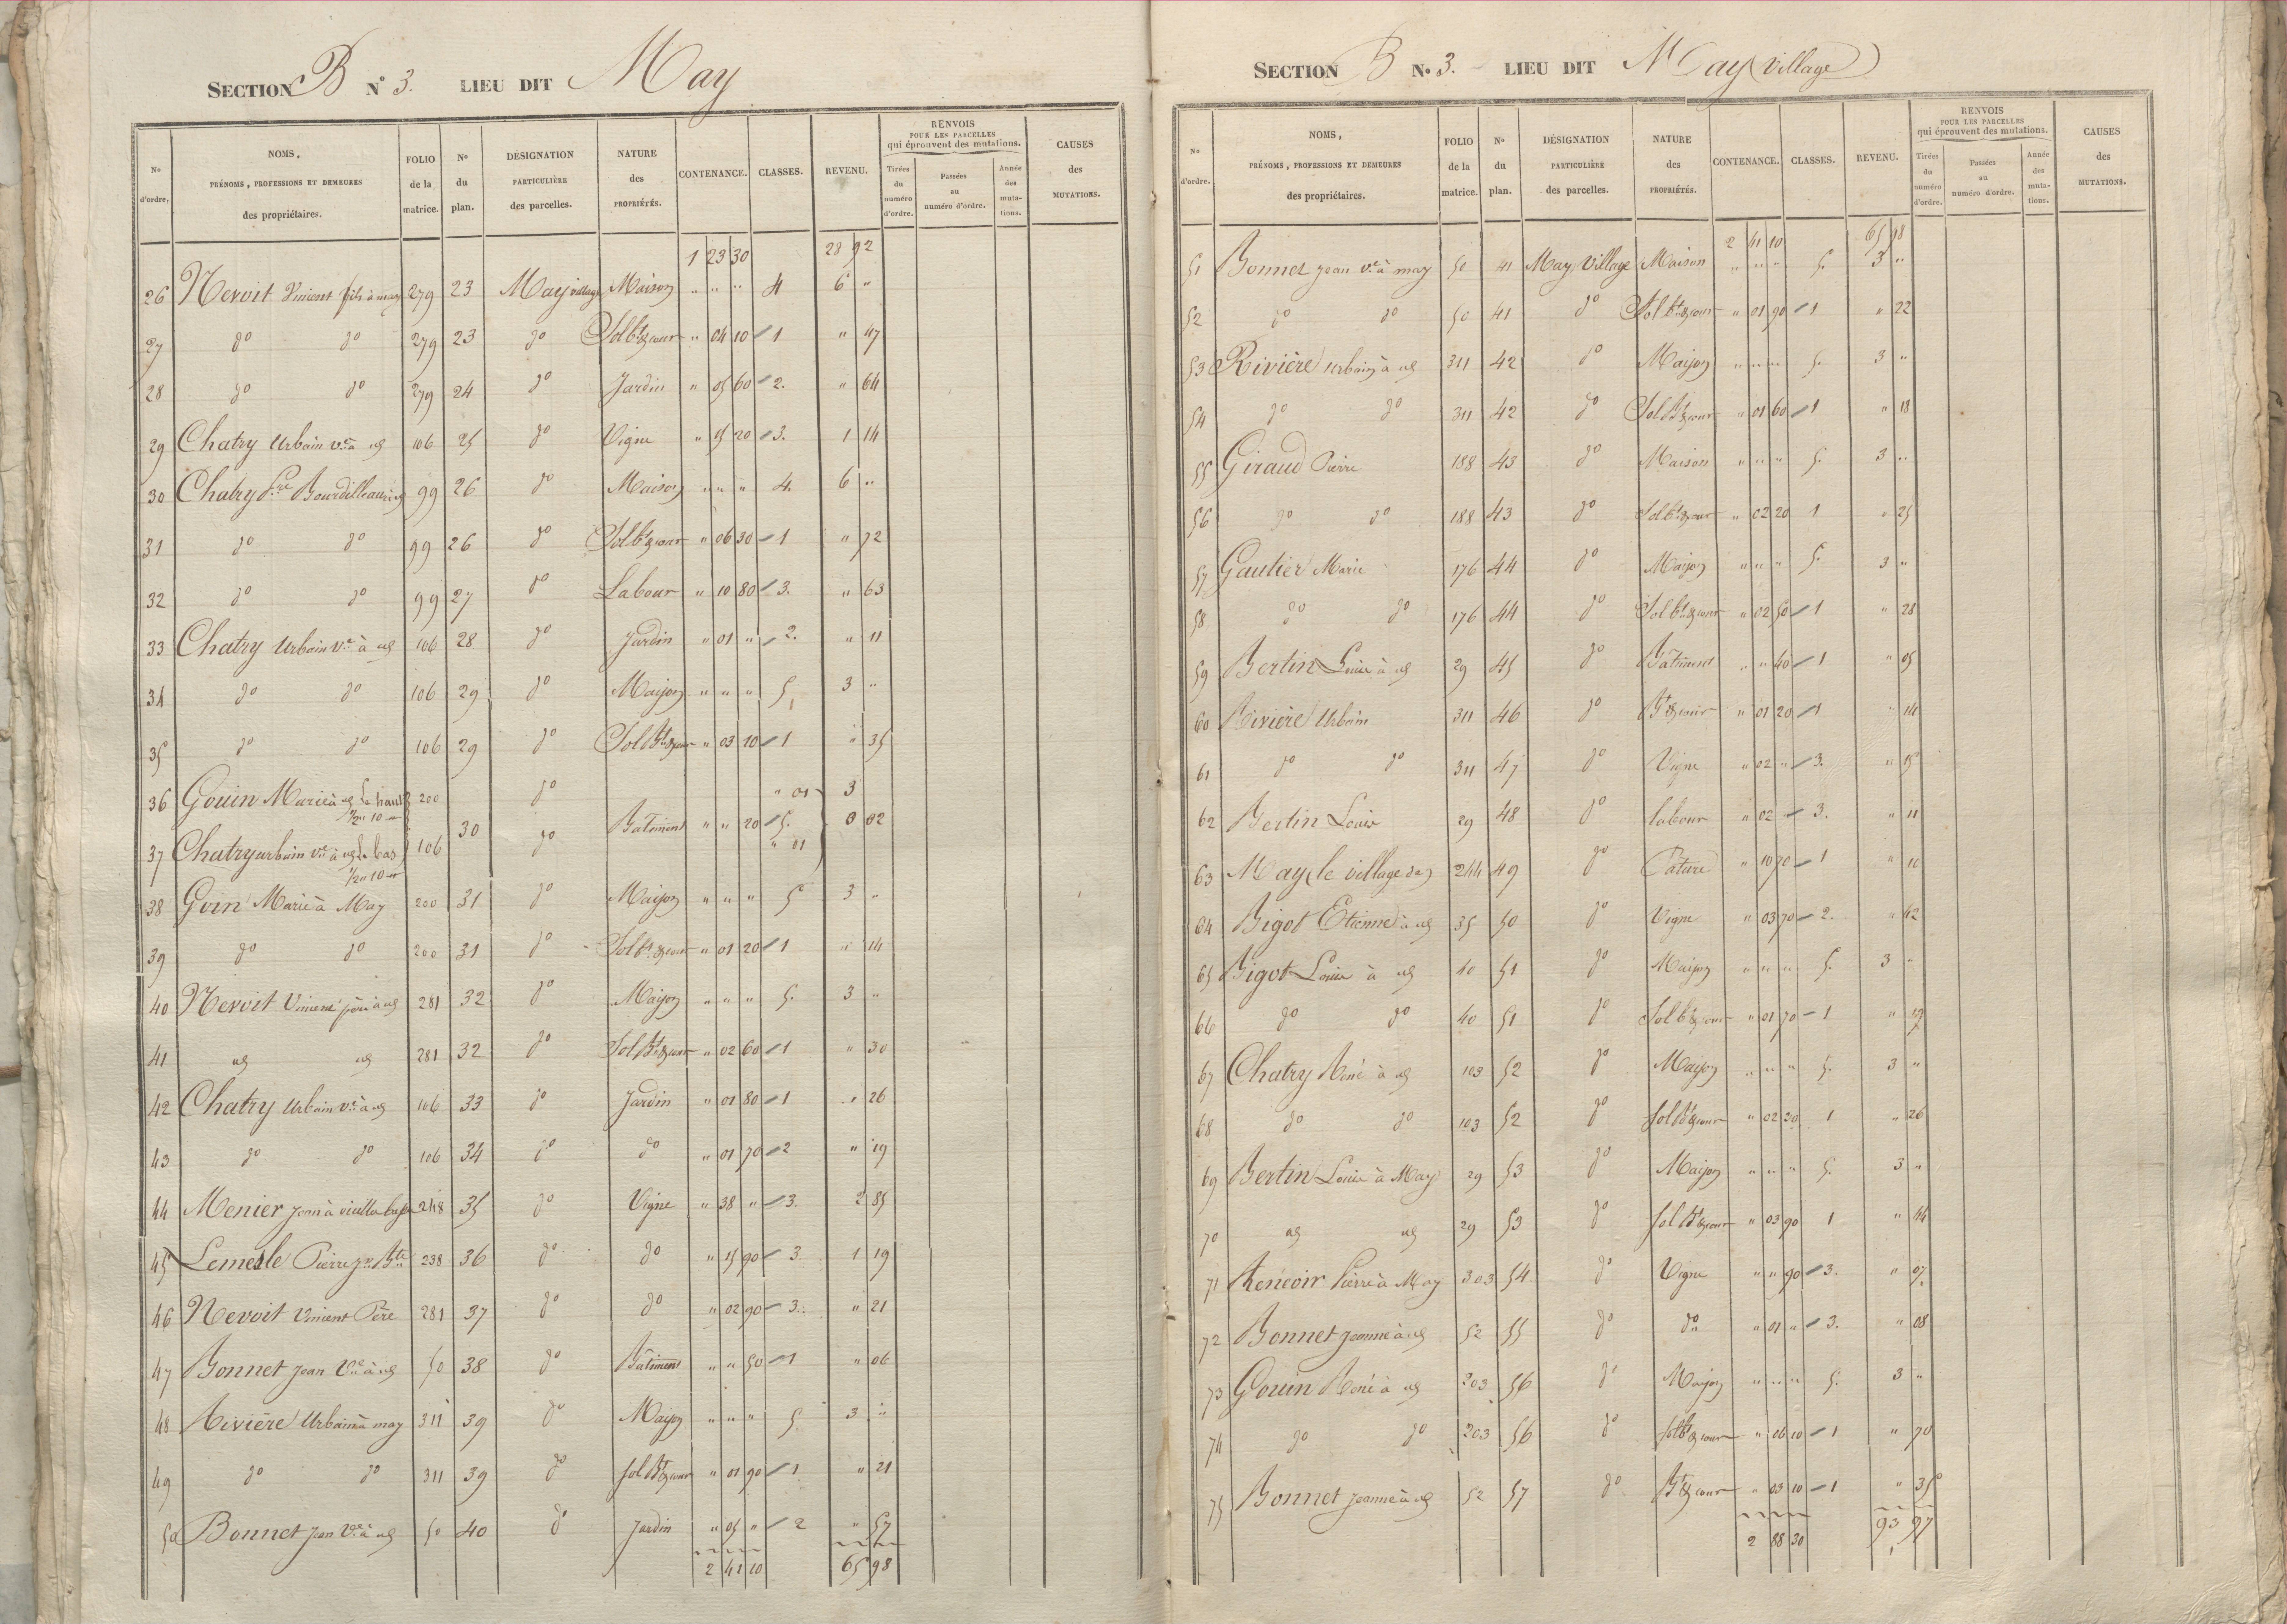 SECTION B N° 3. LIEU DIT May
N° d'ordre. NOMS, PRÉNOMS, PROFESSIONS ET DEMEURES des propriétaires. FOLIO de la matrice. N° du plan. DÉSIGNATION PARTICULIÈRE des parcelles. NATURE des PROPRIÉTÉS. CONTENANCE. CLASSES. REVENU. RENVOIS POUR LES PARCELLES qui éprouvent des mutations. Tirées du numéro d'ordre. Passées au numéro d'ordre. Année des mutations. CAUSES des MUTATIONS.
1 23 30 28 92
26 Nevoit Vincent fils à may 279 23 May village Maison " " " 4 6 "
27 do do 279 23 do Sol bt & cour " 04 10 1 " 47
28 do do 279 24 do Jardin " 05 60 2. " 64
29 Chatry Urbain ve à 106 25 do Vigne " 15 20 3. 1 14
30 Chatry 99 26 do Maison " " " 4. 6 "
31 do do 99 26 do Sol bt & cour " 06 30 1 " 72
32 do do 99 27 do Labour " 10 80 3. " 63
33 Chatry Urbain Ve à 106 28 do Jardin " 01 " 2. " 11
34 do do 106 29 do Maison " " " 5 3 "
35 do do 106 29 do Sol Bt & cour " 03 10 1 " 35
36 Gouin Marie à Le haut 200 do " 01 3
1/2 " 10
30 Bâtiment " " 20 5. 0 02
37 Chatry urbain ve à Le bas 106 do " 01
1/2 " 10
38 Goin Marie à May 200 31 do Maison " " " 5 3 "
39 do do 200 31 do Sol bt & cour " 01 20 1 " 14
40 Nevoit Vincent père à 281 32 do Maison " " " 5. 3 "
41 281 32 do Sol Bt & cour " 02 60 1 " 30
42 Chatry Urbain Ve à 106 33 do Jardin " 01 80 1 " 26
43 do do 106 34 do do " 01 70 2 " 19
44 Menier Jean à 248 35 do Vigne " 38 " 3. 2 85
45 Lemesle Pierre 238 36 do do " 15 90 3. 1 19
46 Nevoit Vincent Père 281 37 do do " 02 90 3. " 21
47 Bonnet Jean Ve à 50 38 do Bâtiment " " 50 1 " 06
48 Rivière Urbain à may 311 39 do Maison " " " 5 3 "
49 do do 311 39 do Sol Bt & cour " 01 90 1 " 21
50 Bonnet Jean Ve à 50 40 do Jardin " 05 " 2 " 57
2 41 10 65 98
SECTION B N° 3. LIEU DIT May (village)
N° d'ordre. NOMS, PRÉNOMS, PROFESSIONS ET DEMEURES des propriétaires. FOLIO de la matrice. N° du plan. DÉSIGNATION PARTICULIÈRE des parcelles. NATURE des PROPRIÉTÉS. CONTENANCE. CLASSES. REVENU. RENVOIS POUR LES PARCELLES qui éprouvent des mutations. Tirées du numéro d'ordre. Passées au numéro d'ordre. Année des mutations. CAUSES des MUTATIONS.
2 41 10 65 98
51 Bonnet Jean ve à may 50 41 May Village Maison " " " 5. 3 "
52 do do 50 41 do Sol bt & cour " 01 90 1 " 22
53 Rivière urbain à 311 42 do Maison " " " 5. 3 "
54 do do 311 42 do Sol Bt & cour " 01 60 1 " 18
55 Giraud Pierre 188 43 do Maison " " " 5. 3 "
56 do do 188 43 do Sol bt & cour " 02 20 1 " 25
57 Gautier Marie 176 44 do Maison " " " 5. 3 "
58 do do 176 44 do Sol bt & cour " 02 50 1 " 28
59 Bertin Louis à 29 45 do Bâtiment " " 40 1 " 05
60 Rivière Urbain 311 46 do Bt & cour " 01 20 1 " 14
61 do do 311 47 do Vigne " 02 " 3. " 15
62 Bertin Louis 29 48 do labour " 02 " 3. " 11
63 May (le village de) 244 49 do Pature " 10 70 1 " 10
64 Bigot Etienne à 35 50 do Vigne " 03 70 2. " 42
65 Bigot Louis à 40 51 do Maison " " " 5. 3 "
66 do do 40 51 do Sol bt & cour " 01 70 1 " 19
67 Chatry René à 103 52 do Maison " " " 5. 3 "
68 do do 103 52 do Sol bt & cour " 02 30 1 " 26
69 Bertin Louis à May 29 53 do Maison " " " 5. 3 "
70 29 53 do Sol Bt & cour " 03 90 1 " 44
71 Renevoir Pierre à May 303 54 do Vigne " " 90 3. " 07
72 Bonnet Jeanne à 52 55 do do " 01 " 3. " 08
73 Gouin René à 203 56 do Maison " " " 5. 3 "
74 do do 203 56 do Sol bt & cour " 06 10 1 " 70
75 Bonnet Jeanne à 52 57 do Bt & cour " 03 10 1 " 35
2 88 30 93 97